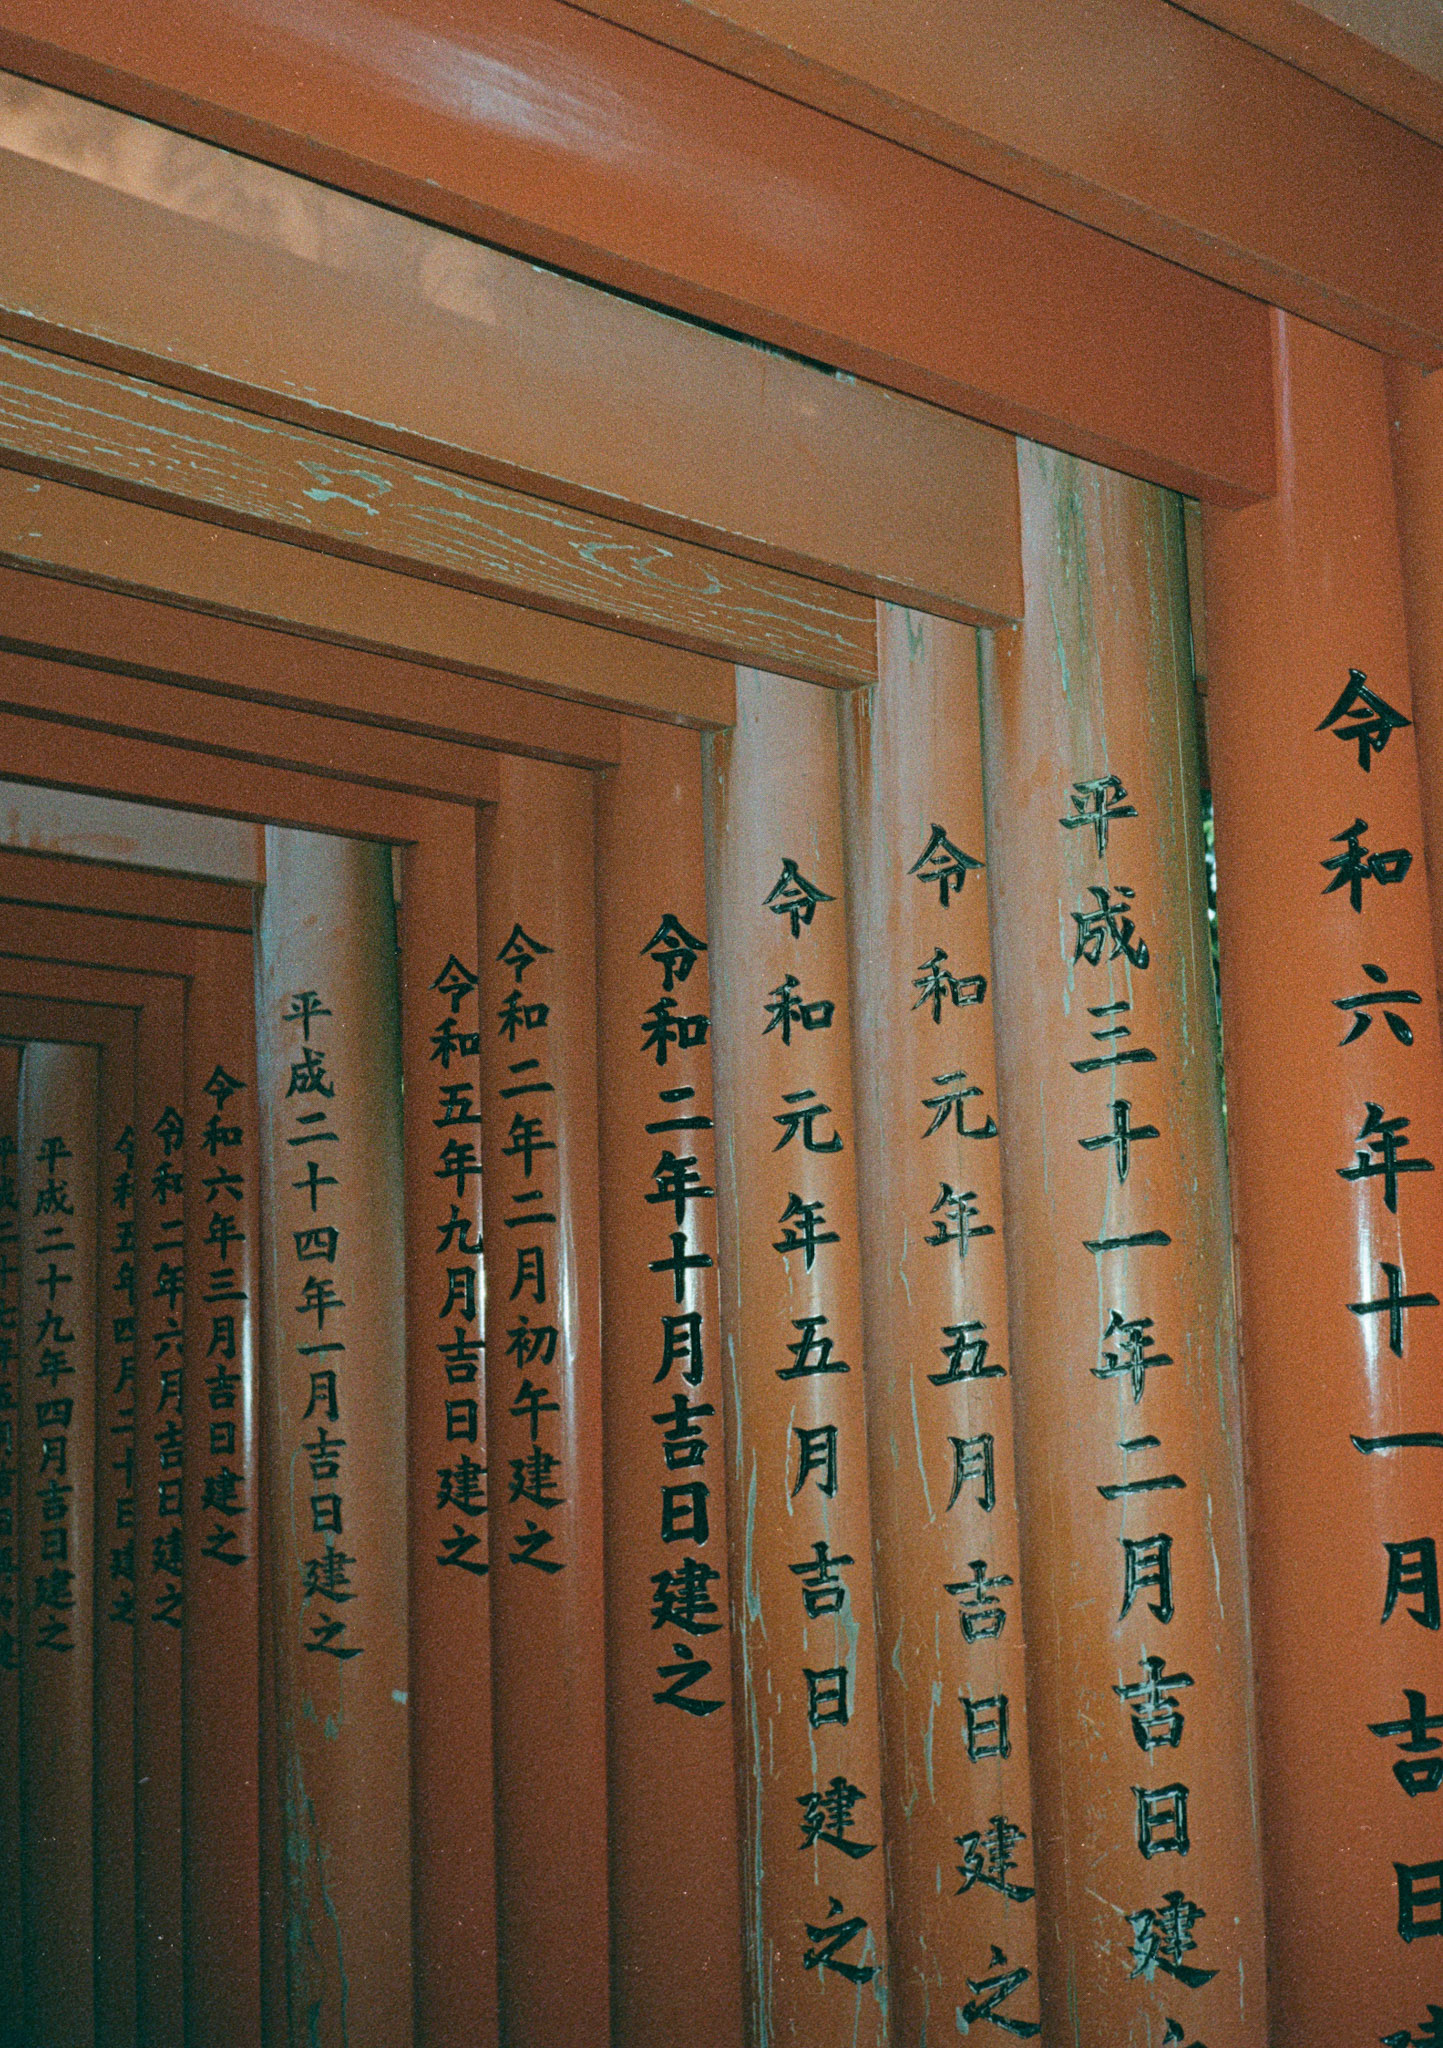 令和六年十一月吉日建
平成三十一年二月吉日建
令和元年五月吉日建之
令和元年五月吉日建之
令和二年十月吉日建之
令和二年二月初午建之
令和五年九月吉日建之
平成二十四年一月吉日建之
令和六年三月吉日建之
令和二年六月吉日建之
令和五年四月二十日建之
平成二十九年四月吉日建之